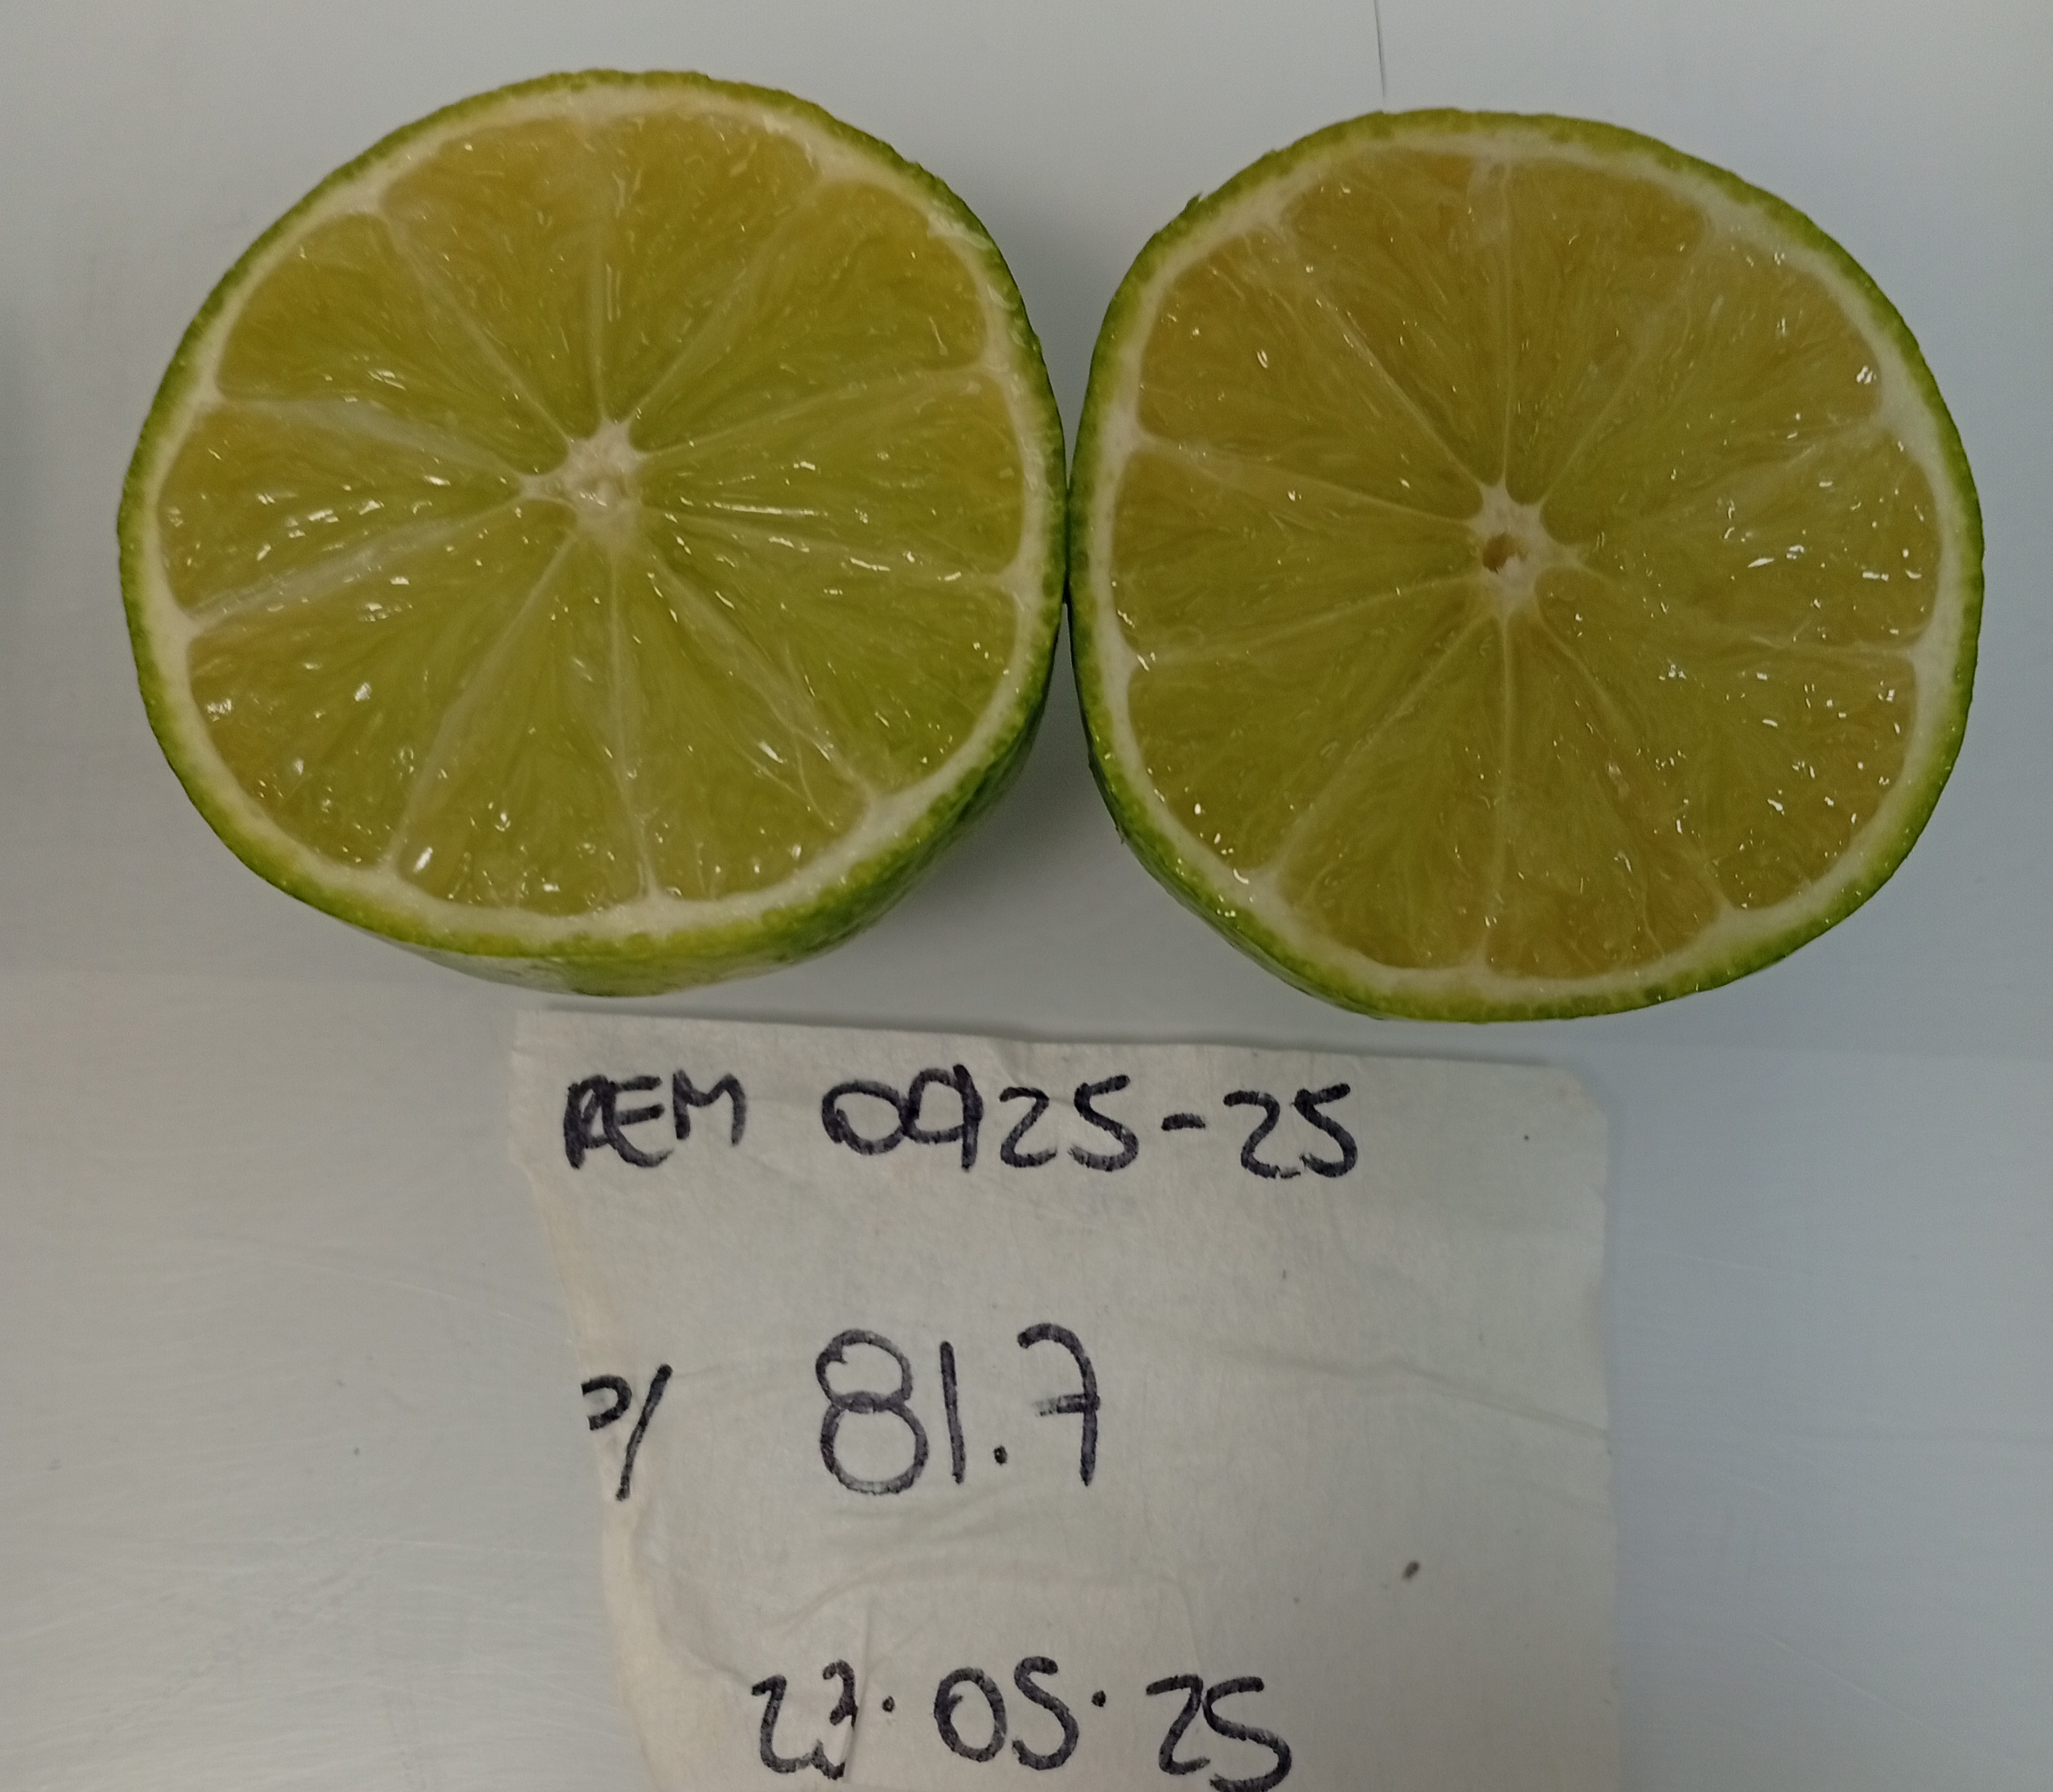 REM 0925-25
P/ 81.7
23.05.25